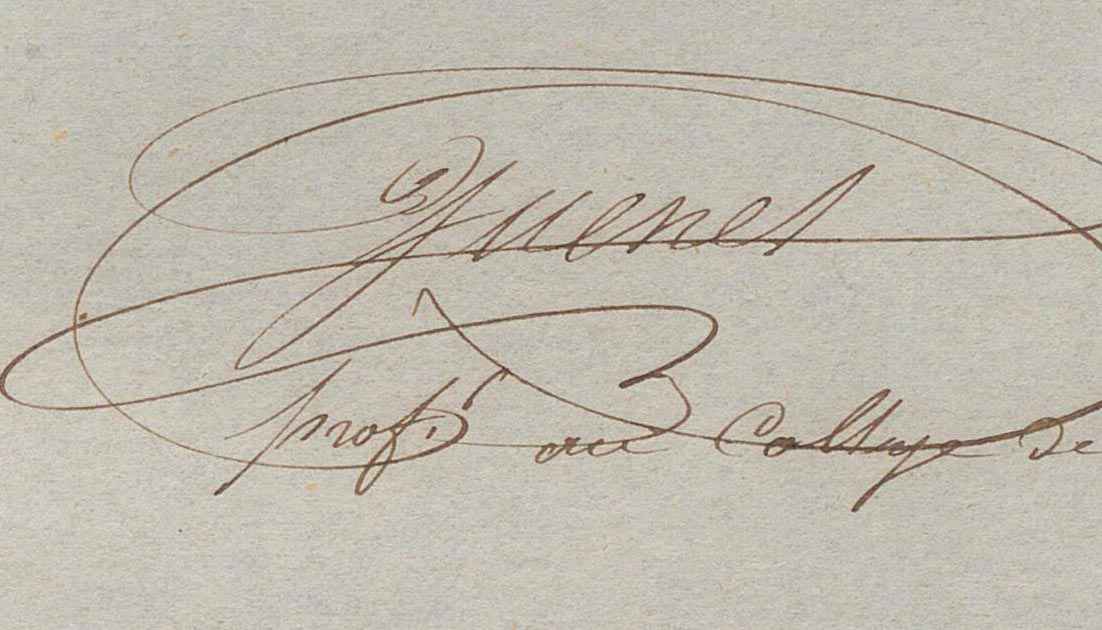 Quenet
prof.r au College de